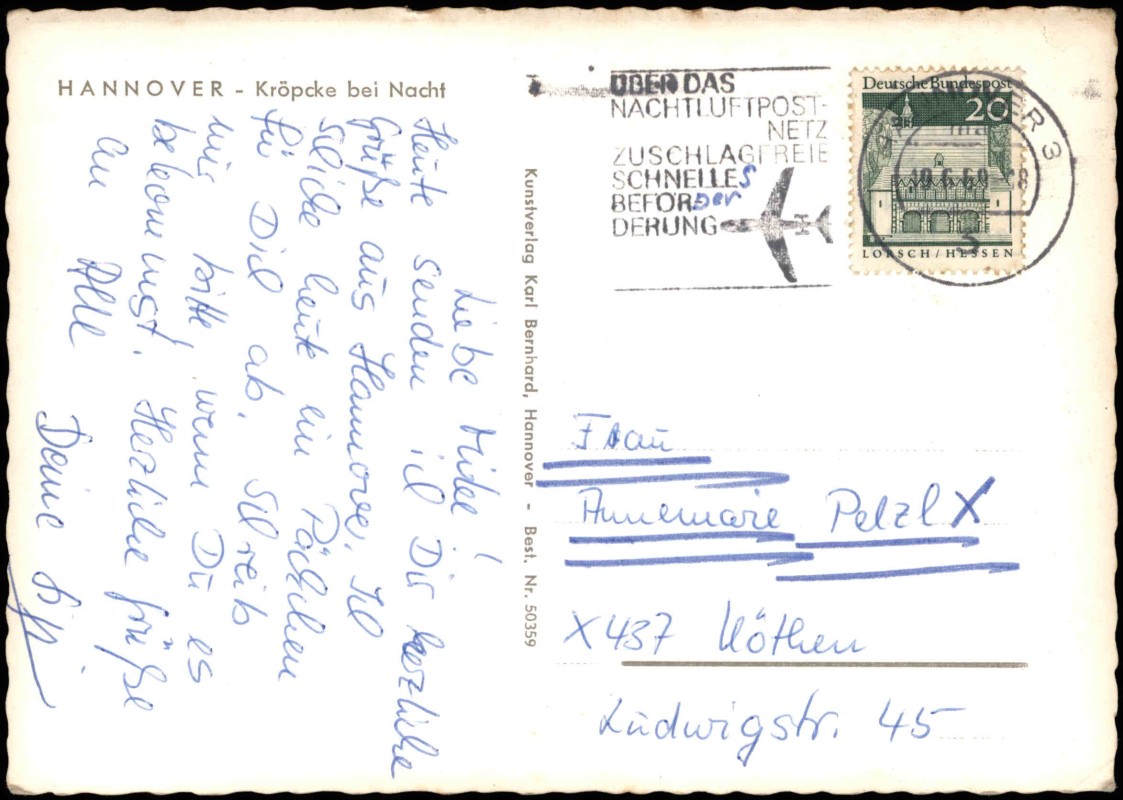 HANNOVER - Kröpcke bei Nacht
Liebe
Heute senden ich Dir herzliche
Grüße aus Hannover. Ich
schicke heute ein Päckchen
für Dich ab. Schreib
mir bitte, wenn Du es
bekommst. Herzliche Grüße
an Alle
Deine
Kunstverlag Karl Bernhard, Hannover - Best. Nr. 50359
ÜBER DAS
NACHTLUFTPOST-
NETZ
ZUSCHLAGFREIE
SCHNELLES
BEFÖR der
DERUNG
Deutsche Bundespost
20
LORSCH/HESSEN
HANNOVER 3
Frau
Annemarie Pelzl X
X437 Köthen
Ludwigstr. 45